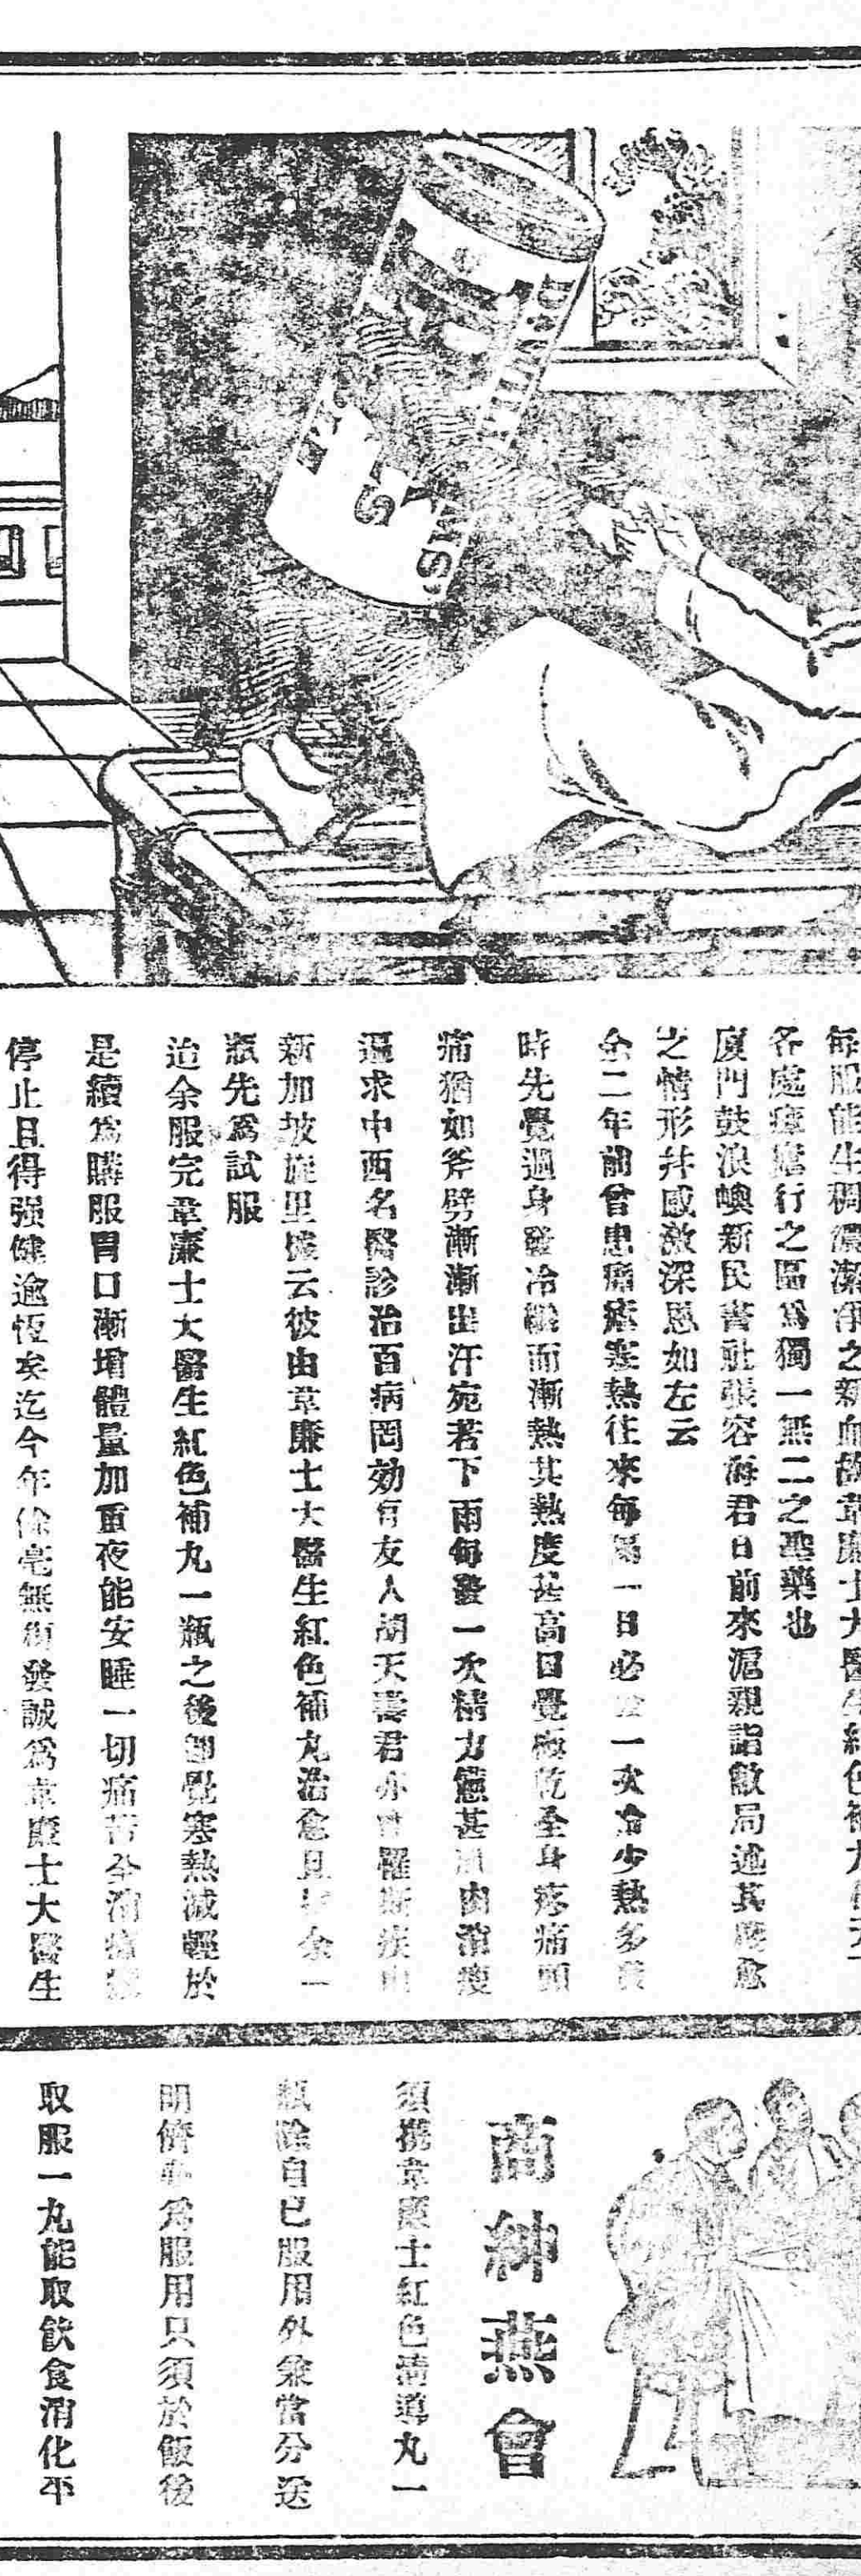 每服能生稠濃潔淨之新血故韋廉士大醫生紅色補丸
各處瘴癘行之區爲獨一無二之聖藥也
廈門鼓浪嶼新民書社張容海君日前來滬親詣敝局述其愈
之情形并感激深恩如左云
余二年前曾患瘧寒熱往來每隔一日必一次冷少熱多
時先覺週身發冷繼而漸熱其熱度甚高口覺極乾全身疼痛頭
痛猶如斧劈漸漸出汗宛若下雨每發一次精力憊甚肌肉消瘦
遍求中西名醫診治百病罔効有友人胡天壽君亦曾罹斯疾由
新加坡旋里據云彼由韋廉士大醫生紅色補丸治愈且余一
瓶先爲試服
治余服完韋廉士大醫生紅色補丸一瓶之後卽覺寒熱減輕於
是續爲購服胃口漸增體量加重夜能安睡一切痛苦全消
停止且得强健逾恆矣迄今年餘毫無復發誠爲韋廉士大醫生
商紳燕會
須攜韋廉士紅色清導丸一
瓶除自已服用外兼當分送
朋儕爲服用只須於飯後
取服一丸能取飲食消化平